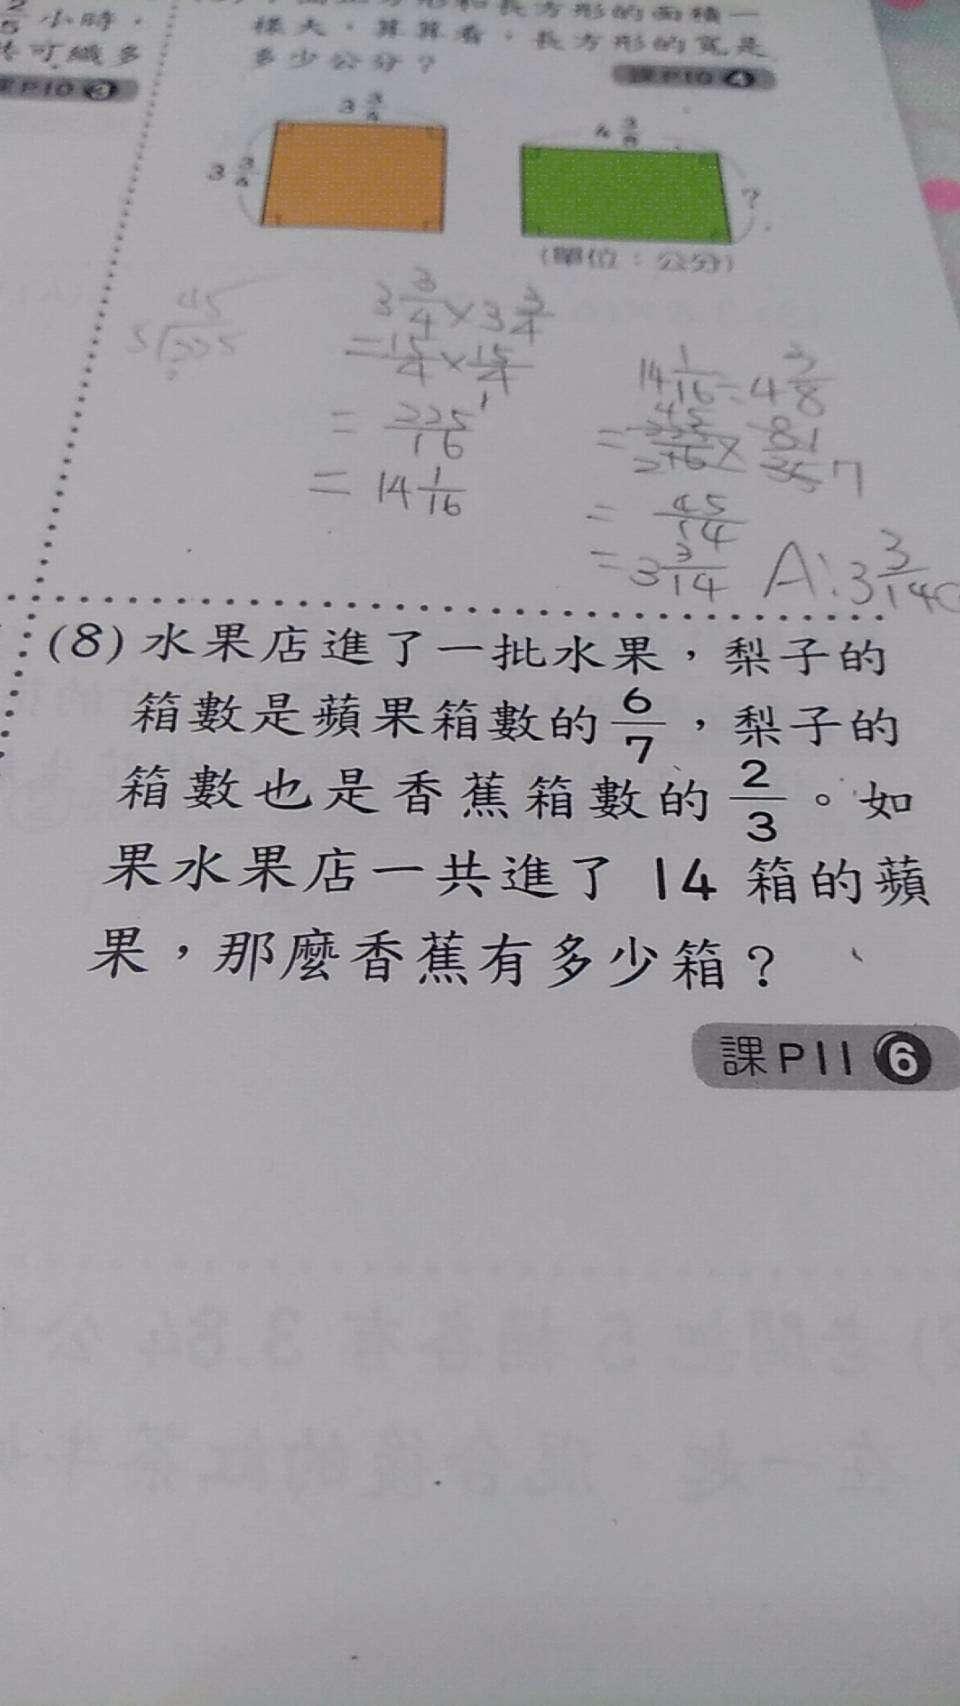 小時，
可織多
課P10 3
形和長方形的面積一
樣大，算算看，長方形的寬是
多少公分？
課P10 4
3 3/4
3 3/4
4 3/8
?
(單位：公分)
45
5 225
3 3/4 × 3 3/4
= 15/4 × 15/4
= 225/16
= 14 1/16
14 1/16 ÷ 4 3/8
= 225/16 × 8/35
= 45/14
= 3 3/14
A: 3 3/14
(8) 水果店進了一批水果，梨子的
箱數是蘋果箱數的 6/7，梨子的
箱數也是香蕉箱數的 2/3。如
果水果店一共進了 14 箱的蘋
果，那麼香蕉有多少箱？
課P11 6